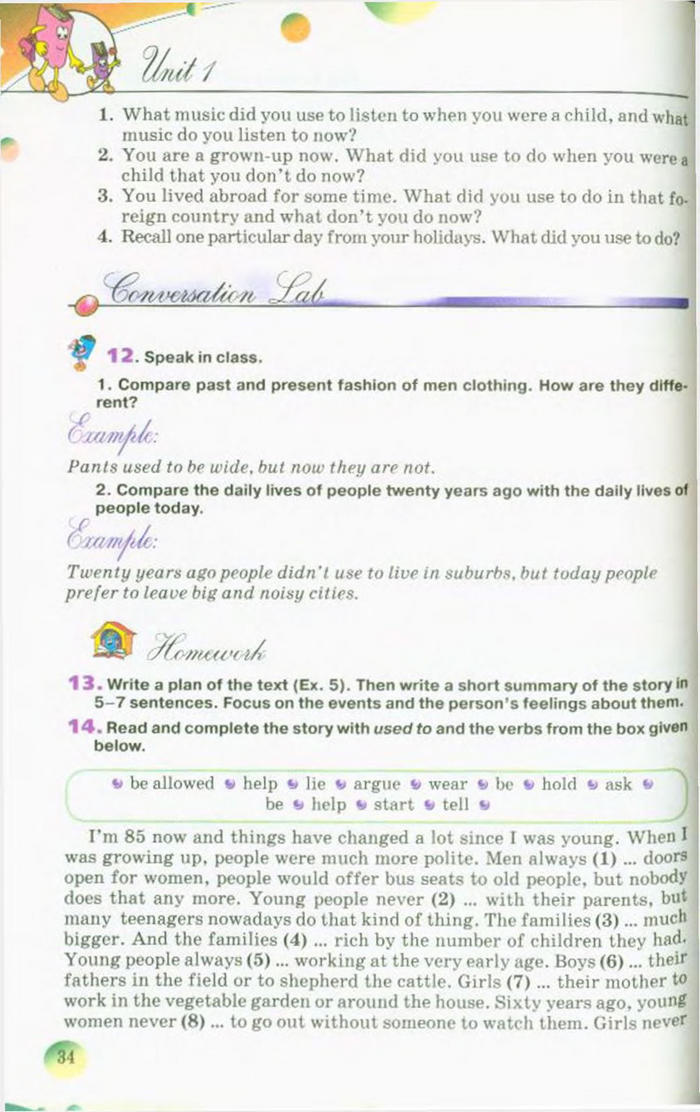 Unit 1
1. What music did you use to listen to when you were a child, and what
music do you listen to now?
2. You are a grown-up now. What did you use to do when you were a
child that you don't do now?
3. You lived abroad for some time. What did you use to do in that fo-
reign country and what don't you do now?
4. Recall one particular day from your holidays. What did you use to do?
Conversation Lab
12. Speak in class.
1. Compare past and present fashion of men clothing. How are they diffe-
rent?
Example:
Pants used to be wide, but now they are not.
2. Compare the daily lives of people twenty years ago with the daily lives of
people today.
Example:
Twenty years ago people didn't use to live in suburbs, but today people
prefer to leave big and noisy cities.
Homework
13. Write a plan of the text (Ex. 5). Then write a short summary of the story in
5–7 sentences. Focus on the events and the person's feelings about them.
14. Read and complete the story with used to and the verbs from the box given
below.
be allowed help lie argue wear be hold ask
be help start tell
I'm 85 now and things have changed a lot since I was young. When I
was growing up, people were much more polite. Men always (1) ... doors
open for women, people would offer bus seats to old people, but nobody
does that any more. Young people never (2) ... with their parents, but
many teenagers nowadays do that kind of thing. The families (3) ... much
bigger. And the families (4) ... rich by the number of children they had.
Young people always (5) ... working at the very early age. Boys (6) ... their
fathers in the field or to shepherd the cattle. Girls (7) ... their mother to
work in the vegetable garden or around the house. Sixty years ago, young
women never (8) ... to go out without someone to watch them. Girls never
34